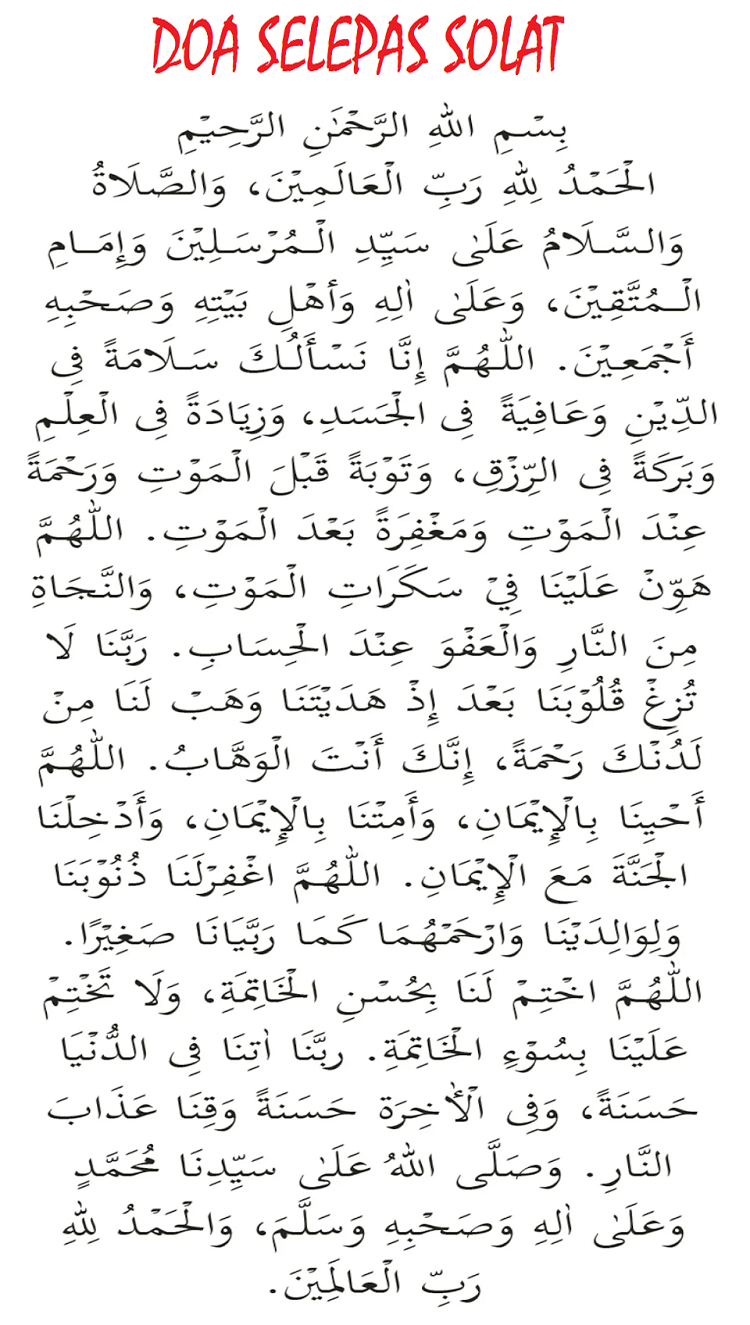 DOA SELEPAS SOLAT
بِسْمِ اللهِ الرَّحْمٰنِ الرَّحِيْمِ
الْحَمْدُ لِلهِ رَبِّ الْعَالَمِيْنَ، وَالصَّلَاةُ
وَالسَّلَامُ عَلَى سَيِّدِ الْمُرْسَلِيْنَ وَإِمَامِ
الْمُتَّقِيْنَ، وَعَلَى اٰلِهِ وَأَهْلِ بَيْتِهِ وَصَحْبِهِ
أَجْمَعِيْنَ. اللّٰهُمَّ إِنَّا نَسْأَلُكَ سَلَامَةً فِى
الدِّيْنِ وَعَافِيَةً فِى الْجَسَدِ، وَزِيَادَةً فِى الْعِلْمِ
وَبَرَكَةً فِى الرِّزْقِ، وَتَوْبَةً قَبْلَ الْمَوْتِ وَرَحْمَةً
عِنْدَ الْمَوْتِ وَمَغْفِرَةً بَعْدَ الْمَوْتِ. اللّٰهُمَّ
هَوِّنْ عَلَيْنَا فِيْ سَكَرَاتِ الْمَوْتِ، وَالنَّجَاةِ
مِنَ النَّارِ وَالْعَفْوَ عِنْدَ الْحِسَابِ. رَبَّنَا لَا
تُزِغْ قُلُوْبَنَا بَعْدَ إِذْ هَدَيْتَنَا وَهَبْ لَنَا مِنْ
لَدُنْكَ رَحْمَةً، إِنَّكَ أَنْتَ الْوَهَّابُ. اللّٰهُمَّ
أَحْيِنَا بِالْإِيْمَانِ، وَأَمِتْنَا بِالْإِيْمَانِ، وَأَدْخِلْنَا
الْجَنَّةَ مَعَ الْإِيْمَانِ. اللّٰهُمَّ اغْفِرْلَنَا ذُنُوْبَنَا
وَلِوَالِدَيْنَا وَارْحَمْهُمَا كَمَا رَبَّيَانَا صَغِيْرًا.
اللّٰهُمَّ اخْتِمْ لَنَا بِحُسْنِ الْخَاتِمَةِ، وَلَا تَخْتِمْ
عَلَيْنَا بِسُوْءِ الْخَاتِمَةِ. رَبَّنَا اٰتِنَا فِى الدُّنْيَا
حَسَنَةً، وَفِى الْأٰخِرَة حَسَنَةً وَقِنَا عَذَابَ
النَّارِ. وَصَلَّى اللهُ عَلَى سَيِّدِنَا مُحَمَّدٍ
وَعَلَى اٰلِهِ وَصَحْبِهِ وَسَلَّمَ، وَالْحَمْدُ لِلهِ
رَبِّ الْعَالَمِيْنَ.